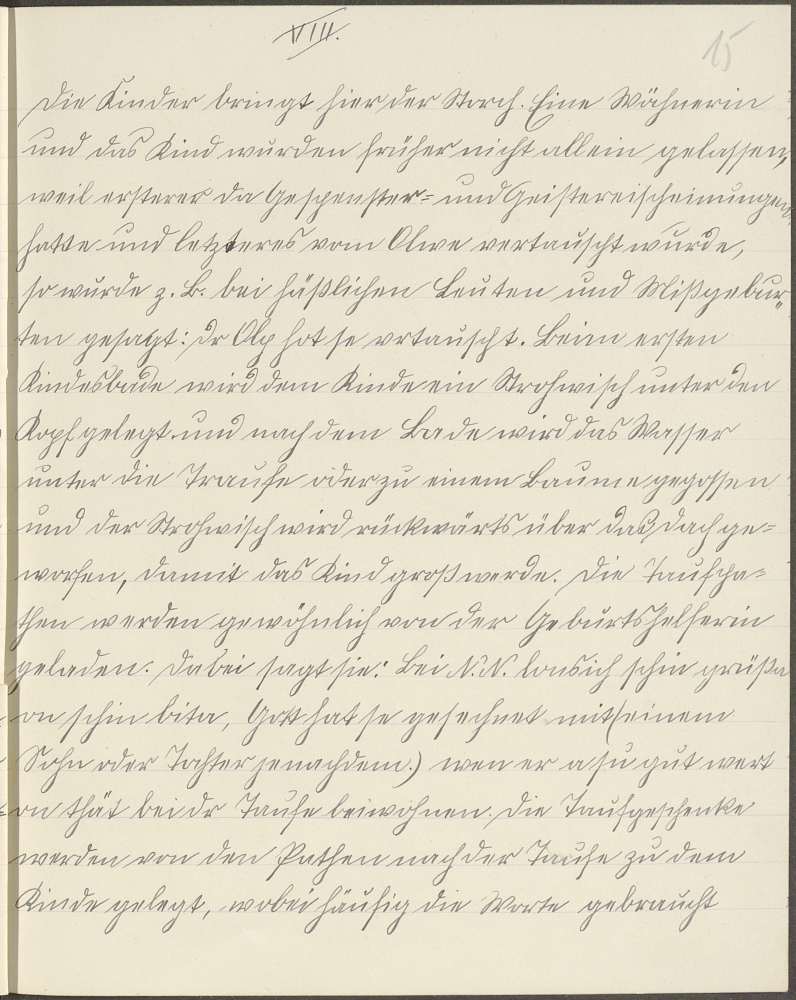 VIII.
15
Die Kinder bringt hier der Storch. Eine Wöchnerin
und das Kind wurden früher nicht allein gelassen,
weil ersterer da Gespenster= und Geistereischeinungen
hatte und letzteres vom Olwe vertauscht wurde,
so wurde z. B. bei häßlichen Leuten und Mißgebur„
ten gesagt: Dr Olp hot se vrtauscht. Beim ersten
Kindesbade wird dem Kinde ein Strohwisch unter den
Kopf gelegt und nach dem Bade wird das Wasser
unter die Traufe oder zu einem Baume gegossen
und der Strohwisch wird rückwärts über das Dach ge=
worfen, damit das Kind groß werde. Die Taufpa=
then werden gewöhnlich von der Geburtshelferin
geladen. Dabei sagt sie: Bei N. N. lonsich schin grüßn
on schin bita, Gott hat se gesechnet mit (einem
Sohn oder Tochter jenachdem.) wen er a su gut wert
on thät bei dr Taufe beiwohnen. Die Taufgeschenke
werden von den Pathen nach der Taufe zu dem
Kinde gelegt, wobei häufig die Worte gebraucht